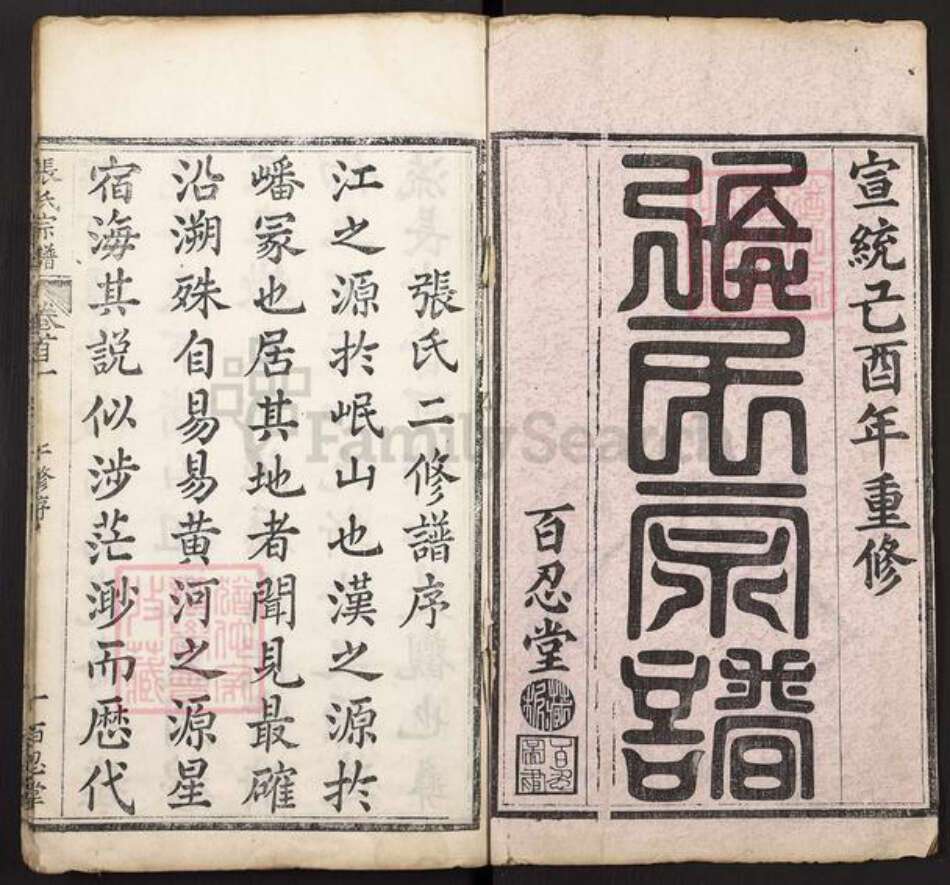 宣統己酉年重修
張氏宗譜
百忍堂
張氏二修譜序
江之源於岷山也漢之源於
嶓冢也居其地者聞見最確
沿溯殊自易易黃河之源星
宿海其說似涉茫渺而歷代
張氏宗譜
卷首一
修序
一
百忍堂
FamilySearch
收藏